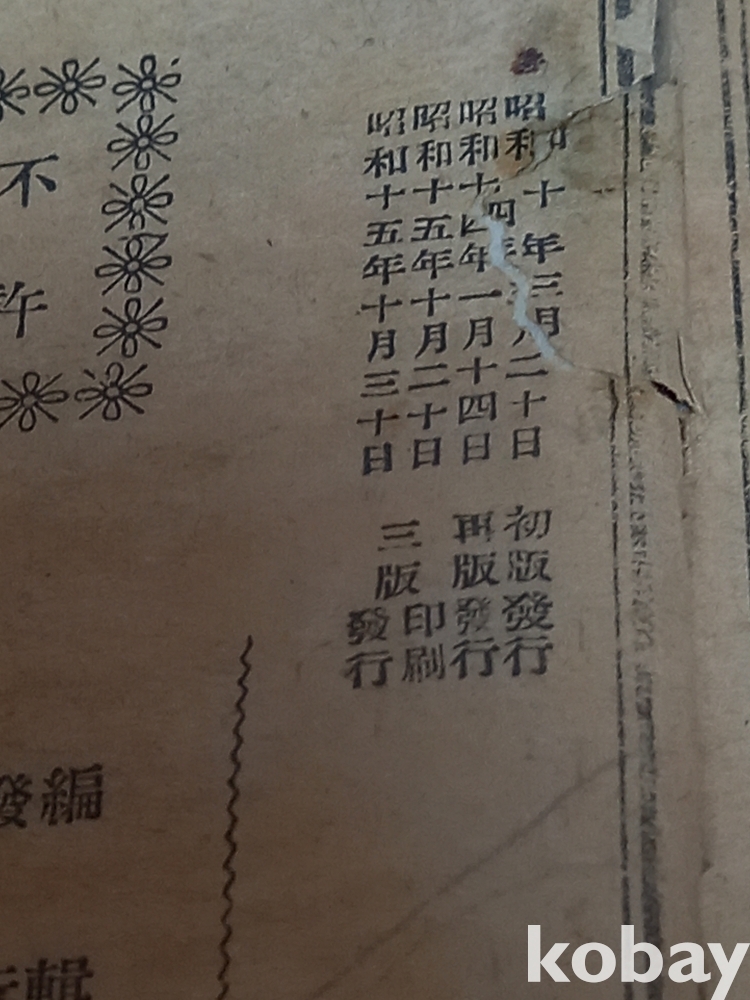 昭和十年三月二十日 初版發行
昭和十四年一月十四日 再版發行
昭和十五年十月二十日 三版印刷
昭和十五年十月三十日 發行
不
編輯
發
kobay